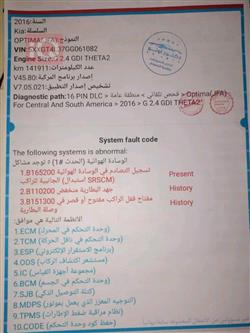 السنة:2016
السلسلة:Kia
النموذج:OPTIMA(JFA)
VIN:5XXGT4L37GG061082
Engine Size:G 2.4 GDI THETA2
عدد الكيلومترات:141911 km
إصدار برنامج المركبة:V45.80
تشخيص إصدار التطبيق:V7.05.021
Diagnostic path:16 PIN DLC > فحص تلقائي > منطقة عامة > Optima(JFA)
For Central And South America > 2016 > G 2.4 GDI THETA2
System fault code
The following systems is abnormal:
الوسادة الهوائية (الحدث #1) ○ توجد مشاكل
1.B165200 تسجيل التصادم في الوسادة الهوائية Present
الجانبية للراكب (استبدال SRSCM)
2.B110200 جهد البطارية منخفض History
3.B151300 مفتاح قفل الراكب مفتوح أو قصر في History
وصلة البطارية
الأنظمة التالية هي موافق:
1.ECM (وحدة التحكم في المحرك)
2.TCM (وحدة التحكم في ناقل الحركة)
3.ESP (برنامج الاستقرار الإلكتروني)
4.ODS (مستشعر اكتشاف الركاب)
5.IC (مجموعة أجهزة القياس)
6.BCM (وحدة التحكم في الجسم)
7.SJB (كتلة التوصيل الذكي)
8.MDPS (التوجيه المعزز الذي يعمل بموتور)
9.TPMS (نظام مراقبة ضغط الإطارات)
10.CODE (حفظ كود وحدة التحكم)